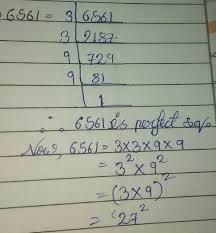 6561 = 3 | 6561
3 | 2187
9 | 729
9 | 81
1
∴ 6561 is perfect sq.
Now, 6561 = 3×3×9×9
= 3² × 9²
= (3×9)²
= 27²